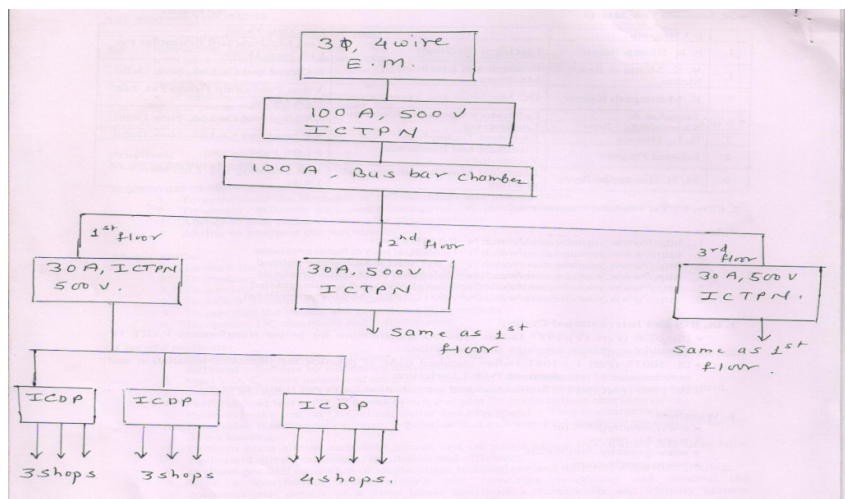 3Φ, 4 wire
E.M.
100 A, 500 V
ICTPN
100 A, Bus bar chamber
1st floor
2nd floor
3rd floor
30 A, ICTPN
500 V.
30 A, 500 V
ICTPN
30 A, 500 V
ICTPN.
Same as 1st
floor
Same as 1st
floor.
ICDP
ICDP
ICDP
3 shops
3 shops
4 shops.